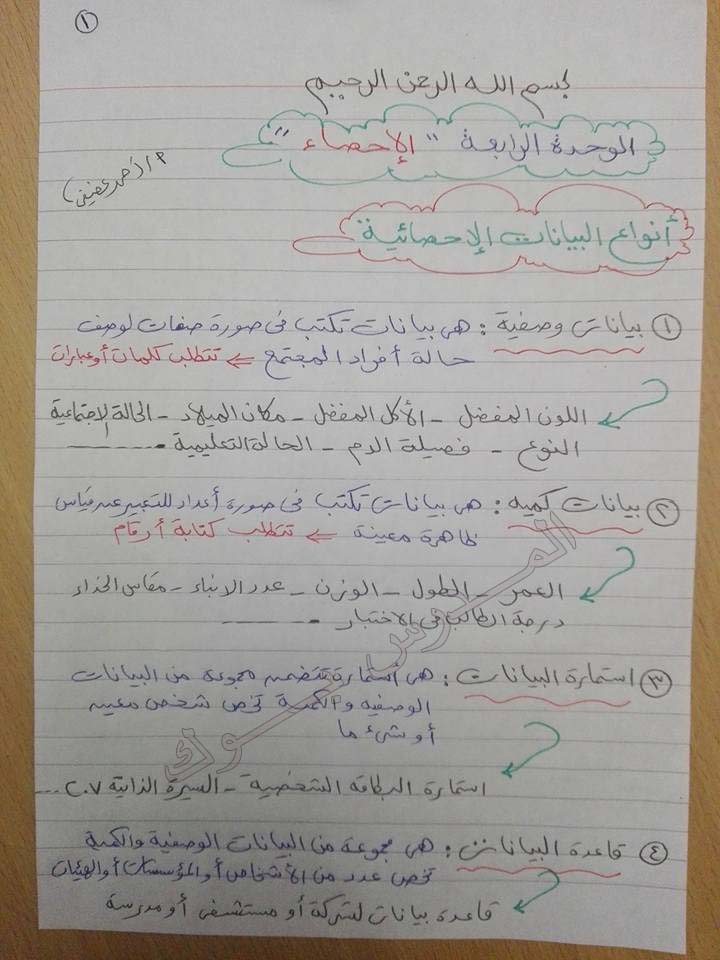 ١
بسم الله الرحمن الرحيم
الوحدة الرابعة " الإحصاء "
أ/ أحمد عفيفي
أنواع البيانات الإحصائية
١ بيانات وصفية : هى بيانات تكتب فى صورة صفات لوصف
حالة أفراد المجتمع ⇐ تتطلب كلمات أو عبارات
اللون المفضل - الأكل المفضل - مكان الميلاد - الحالة الاجتماعية
النوع - فصيلة الدم - الحالة التعليمية -------
٢ بيانات كميه : هى بيانات تكتب فى صورة أعداد للتعبير عن قياس
ظاهرة معينة ⇐ تتطلب كتابة أرقام
العمر - الطول - الوزن - عدد الابناء - مقاس الحذاء
درجة الطالب فى الاختبار -------
٣ استمارة البيانات : هى استمارة تتضمن مجموعة من البيانات
الوصفيه والكمية تخص شخص معين
أو شىء ما
استمارة البطاقه الشخصية - السيرة الذاتية C.V ....
٤ قاعدة البيانات : هى مجموعة من البيانات الوصفية والكمية
تخص عدد من الأشخاص أو المؤسسات أو الهيئات
قاعدة بيانات لشركة أو مستشفى أو مدرسة